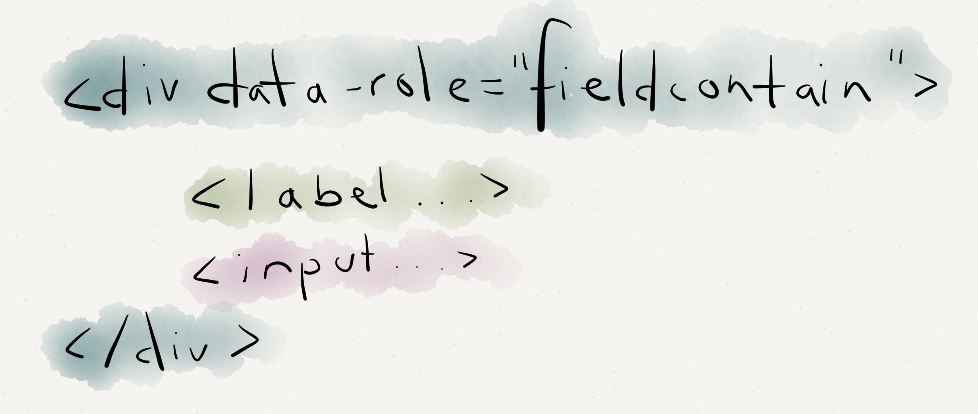 <div data-role="fieldcontain">
<label...>
<input...>
</div>